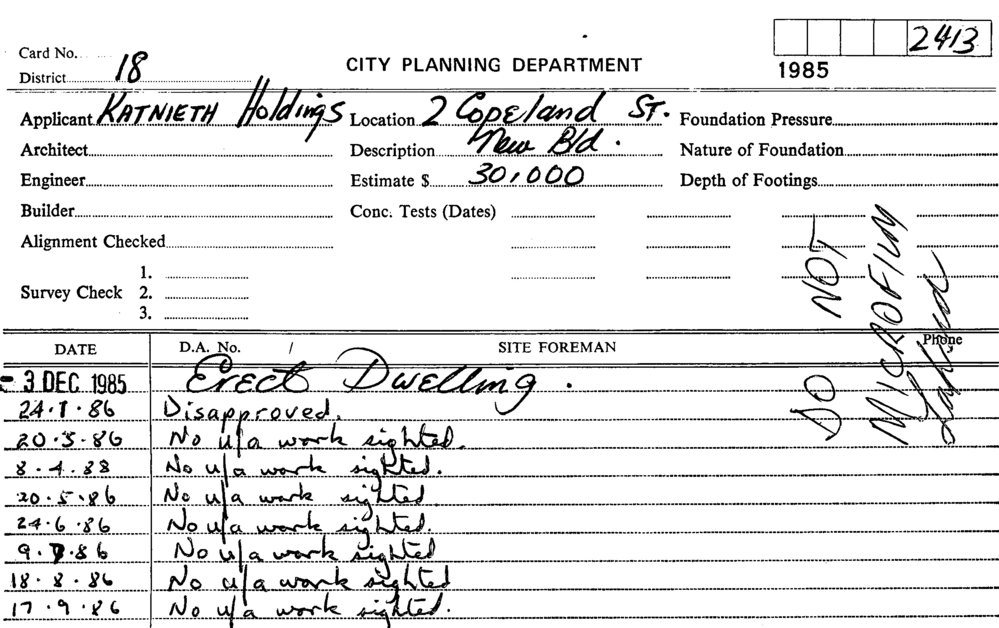 2413
Card No.
District 18
CITY PLANNING DEPARTMENT
1985
Applicant KATNIETH Holdings Location 2 Copeland ST. Foundation Pressure
Architect Description New Bld. Nature of Foundation
Engineer Estimate $ 30,000 Depth of Footings
Builder Conc. Tests (Dates)
Alignment Checked
1.
Survey Check 2.
3.
DO NOT
MICROFILM
DATE D.A. No. SITE FOREMAN Phone
- 3 DEC 1985 Erect Dwelling.
24.1.86 Disapproved.
20.3.86 No u/a work sighted.
8.4.88 No u/a work sighted.
20.5.86 No u/a work sighted
24.6.86 No u/a work sighted.
9.7.86 No u/a work sighted
18.8.86 No u/a work sighted
17.9.86 No u/a work sighted.